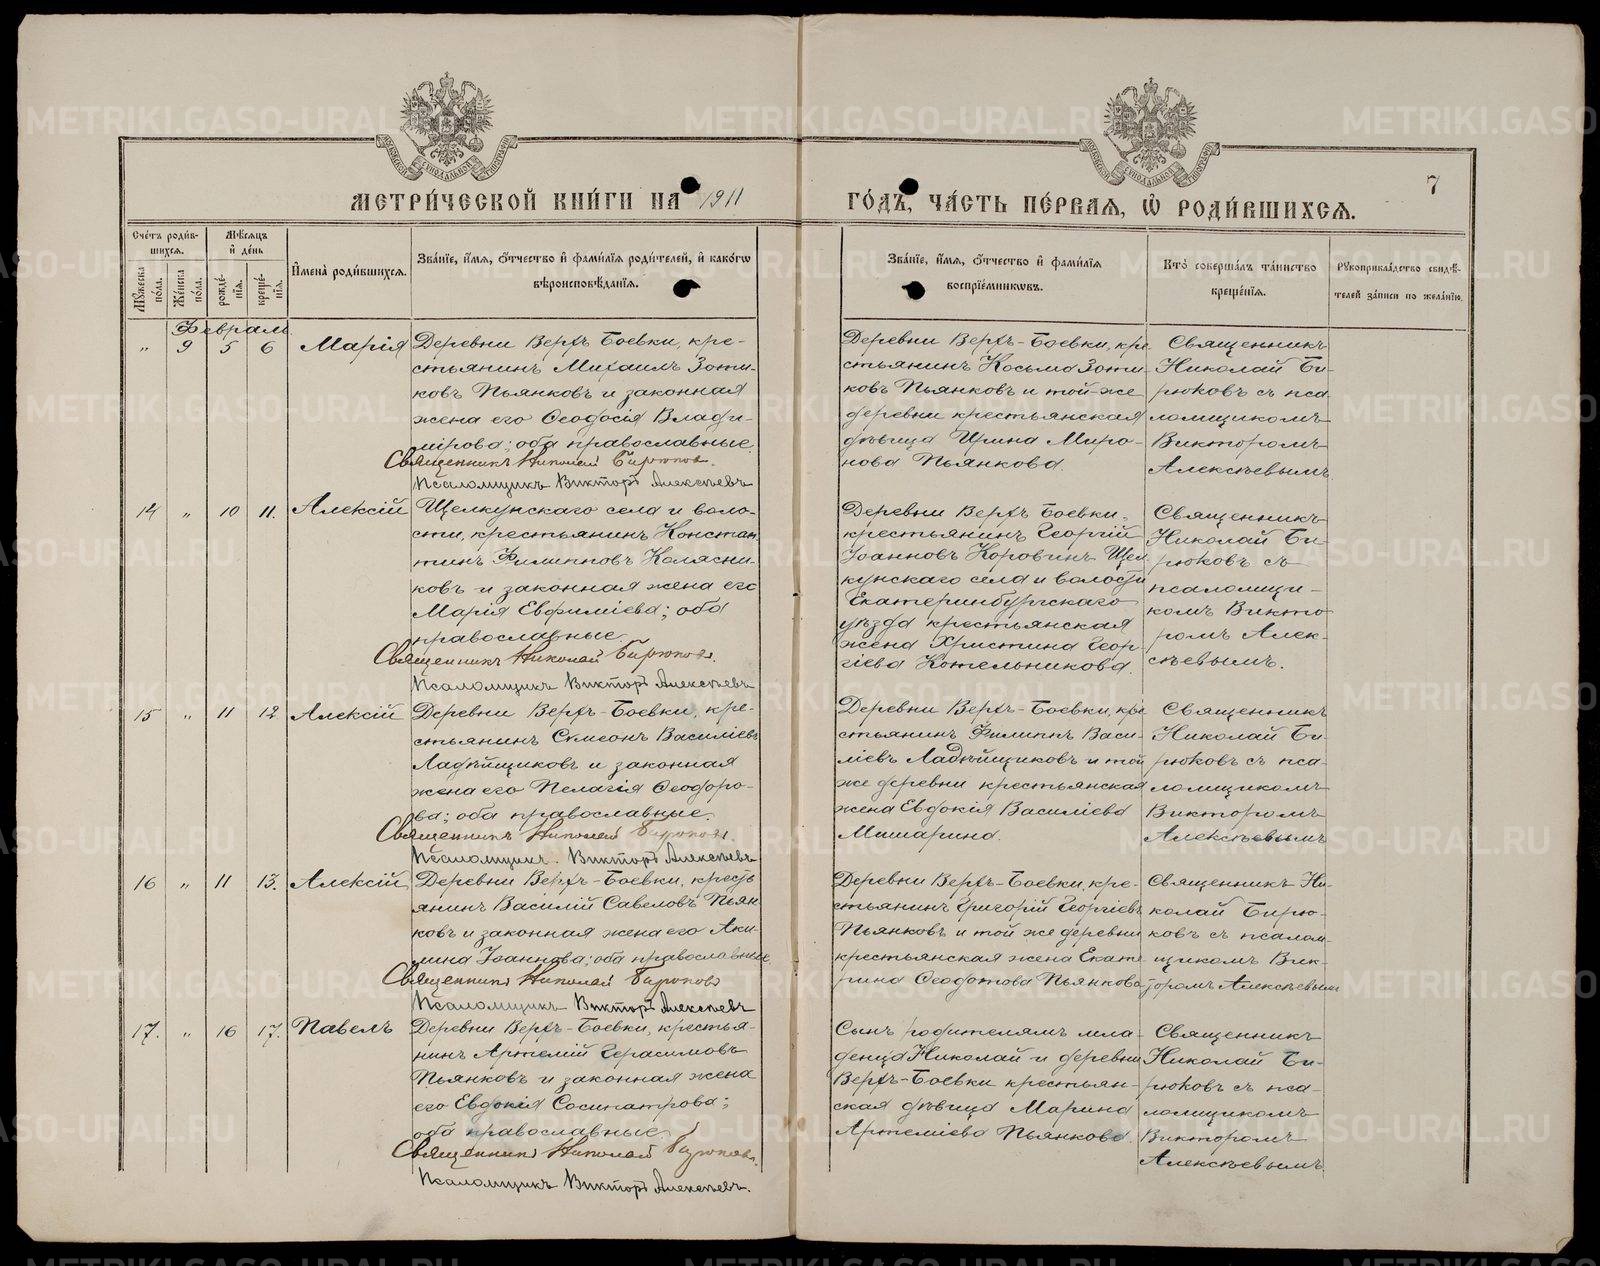 МЕТРИ́ЧЕСКОЙ КНИ́ГИ НА 1911
ГО́ДЪ, ЧА́СТЬ ПЕ́РВАЯ, Ѡ҆ РОДИ́ВШИХСЯ.
7
Сче́тъ роди́в-
шихся.
Мꙋ́жеска по́ла.
Же́нска по́ла.
Мѣ́сяцъ
и҆ де́нь
рожде́-нїя.
креще́-нїя.
И҆мена̀ роди́вшихся.
Зва́нїе, и҆́мя, ѻ҆́тчество и҆ фами́лїя роди́телей, и҆ како́гѡ
вѣроисповѣ́данїя.
Зва́нїе, и҆́мя, ѻ҆́тчество и҆ фами́лїя
воспрїе́мникѡвъ.
Кто̀ соверша́лъ та́инство
креще́нїя.
Рꙋкоприкла́дство свидѣ́-
телей за́писи по жела́нїю.
Февраль
„ 9 5 6 Марія
Деревни Верхъ Боевки, кре-
стьянинъ Михаилъ Зоти-
ковъ Пьянковъ и законная
жена его Ѳеодосія Влади-
мірова; оба православные.
Священникъ Николай Бирюковъ.
Псаломщикъ Викторъ Алексѣевъ
Деревни Верхъ-Боевки, кре
стьянинъ Косьма Зоти-
ковъ Пьянковъ и той-же
деревни крестьянская
дѣвица Ирина Миро-
нова Пьянкова.
Священникъ
Николай Би-
рюковъ съ пса-
ломщикомъ
Викторомъ
Алексѣевымъ
14 „ 10 11. Алексій
Щелкунскаго села и воло-
сти, крестьянинъ Констан
тинъ Филипповъ Колясни-
ковъ и законная жена его
Марія Евфиміева; оба
православные.
Священникъ Николай Бирюковъ.
Псаломщикъ Викторъ Алексѣевъ
Деревни Верхъ Боевки,
крестьянинъ Георгій
Іоанновъ Коровинъ Щел
кунскаго села и волости
Екатеринбургскаго
уѣзда крестьянская
жена Христина Геор-
гіева Котельникова.
Священникъ
Николай Би-
рюковъ съ
псаломщи-
комъ Викто
ромъ Алек-
сѣевымъ.
15 „ 11 12 Алексій
Деревни Верхъ-Боевки, кре-
стьянинъ Сѵмеонъ Василіевъ
Ладѣйщиковъ и законная
жена его Пелагія Ѳеодоро-
ва; оба православные.
Священникъ Николай Бирюковъ.
Псаломщикъ. Викторъ Алексѣевъ
Деревни Верхъ-Боевки, кре
стьянинъ Филиппъ Васи-
ліевъ Ладѣйщиковъ и той
же деревни крестьянская
жена Евдокія Василіева
Машарина.
Священникъ
Николай Би-
рюковъ съ пса-
ломщикомъ
Викторомъ
Алексѣевымъ
16 „ 11 13. Алексій
Деревни Верхъ-Боевки, кресть
янинъ Василій Савеловъ Пьян
ковъ и законная жена его Аки-
лина Іоаннова; оба православные.
Священникъ Николай Бирюковъ
Псаломщикъ Викторъ Алексѣевъ
Деревни Верхъ-Боевки, кре-
стьянинъ Григорій Георгіевъ
Пьянковъ и той же деревни
крестьянская жена Екате
рина Ѳеодотова Пьянкова
Священникъ Ни-
колай Бирю-
ковъ съ псалом-
щикомъ Вик-
торомъ Алексѣевымъ
17. „ 16 17. Павелъ
Деревни Верхъ-Боевки, крестья-
нинъ Артемій Герасимовъ
Пьянковъ и законная жена
его Евдокія Сосипатрова;
оба православные.
Священникъ Николай Бирюковъ.
Псаломщикъ Викторъ Алексѣевъ.
Сынъ родителямъ мла-
денца Николай и деревни
Верхъ-Боевки крестьян-
ская дѣвица Марина
Артеміева Пьянкова.
Священникъ
Николай Би-
рюковъ съ пса-
ломщикомъ
Викторомъ
Алексѣевымъ
METRIKI.GASO-URAL.RU